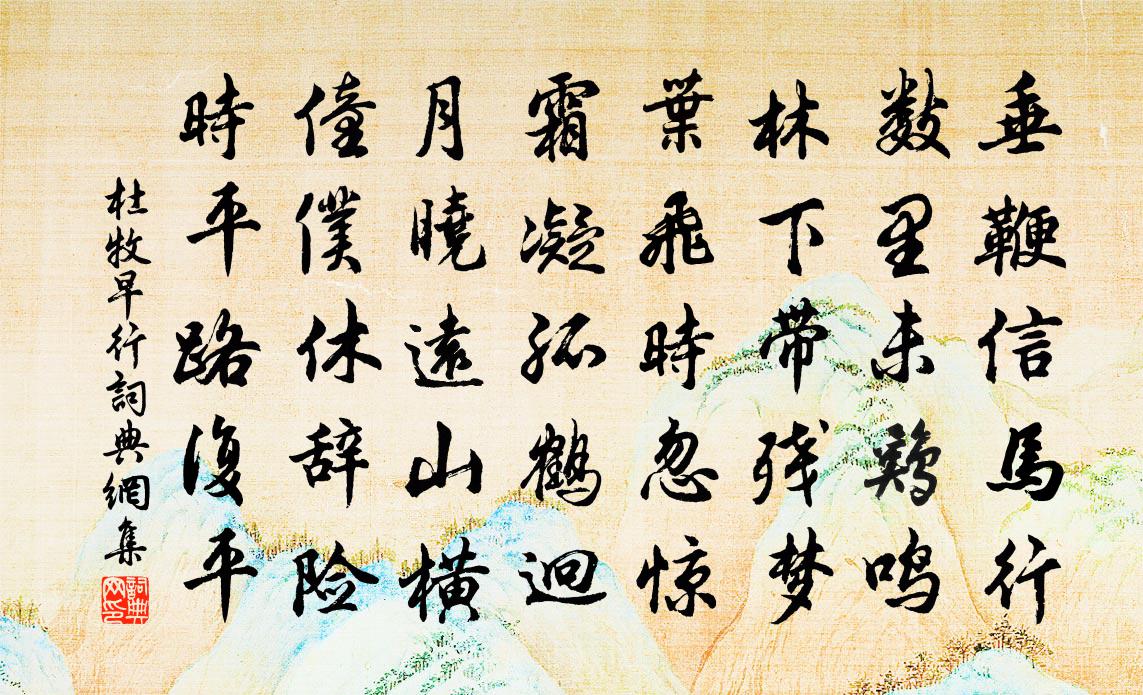 垂鞭信馬行
數里未鷄鳴
林下带残梦
葉飛時忽惊
霜凝孤鶴迥
月曉遠山橫
僮僕休辞险
時平路復平
杜牧早行詞典網集
詞典网印